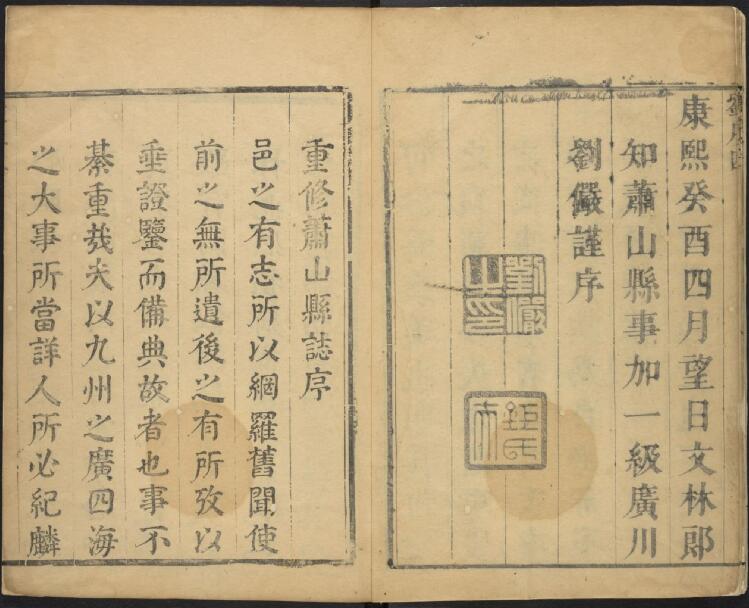 康熙癸酉四月望日文林郎
知蕭山縣事加一級廣川
劉儼謹序
劉儼
重修蕭山縣誌序
邑之有志所以網羅舊聞使
前之無所遺後之有所攷以
垂證鑒而備典故者也事不
綦重哉夫以九州之廣四海
之大事所當詳人所必紀麟